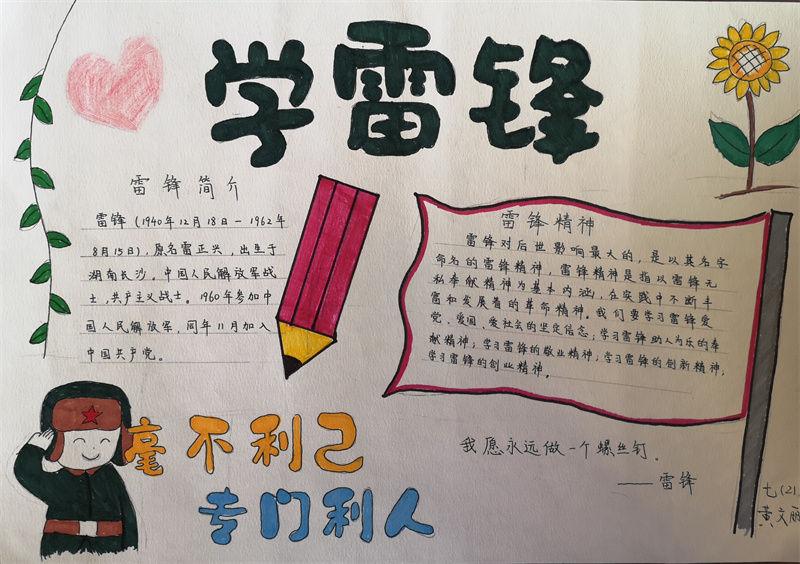 学雷锋
雷锋简介
雷锋(1940年12月18日－1962年
8月15日),原名雷正兴，出生于
湖南长沙。中国人民解放军战
士，共产主义战士。1960年参加中
国人民解放军，同年11月加入
中国共产党。
雷锋精神
雷锋对后世影响最大的，是以其名字
命名的雷锋精神，雷锋精神是指以雷锋无
私奉献精神为基本内涵，在实践中不断丰
富和发展着的革命精神。我们要学习雷锋爱
党、爱国、爱社会的坚定信念，学习雷锋助人为乐的奉
献精神，学习雷锋的敬业精神，学习雷锋的创新精神，
学习雷锋的创业精神。
毫不利己
专门利人
我愿永远做一个螺丝钉.
——雷锋
七(21)
黄文丽